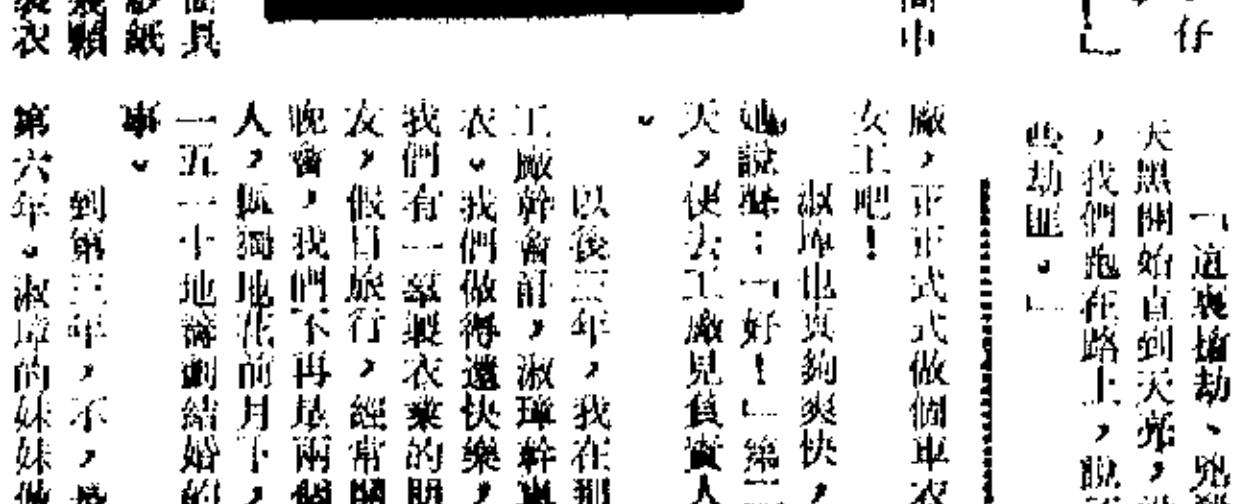 仔
！」
中
具
紙
顆
衣
「這裏搶劫、兇
天黑開始直到天亮，
，我們跑在路上，
些劫匪。」
廠，正正式式做個車衣
女工吧！
淑璋也真夠爽快，
她說聲：「好！」第二
天，便去工廠見負責人
。
以後三年，我在那
工廠幹會計，淑璋幹車
衣。我們做得還快樂，
我們有一羣製衣業的朋
友，假日旅行，經常開
晚會，我們不再是兩個
人，孤獨地花前月下，
一五一十地籌劃結婚的
事。
到第三年，不，
第六年。淑璋的妹妹做